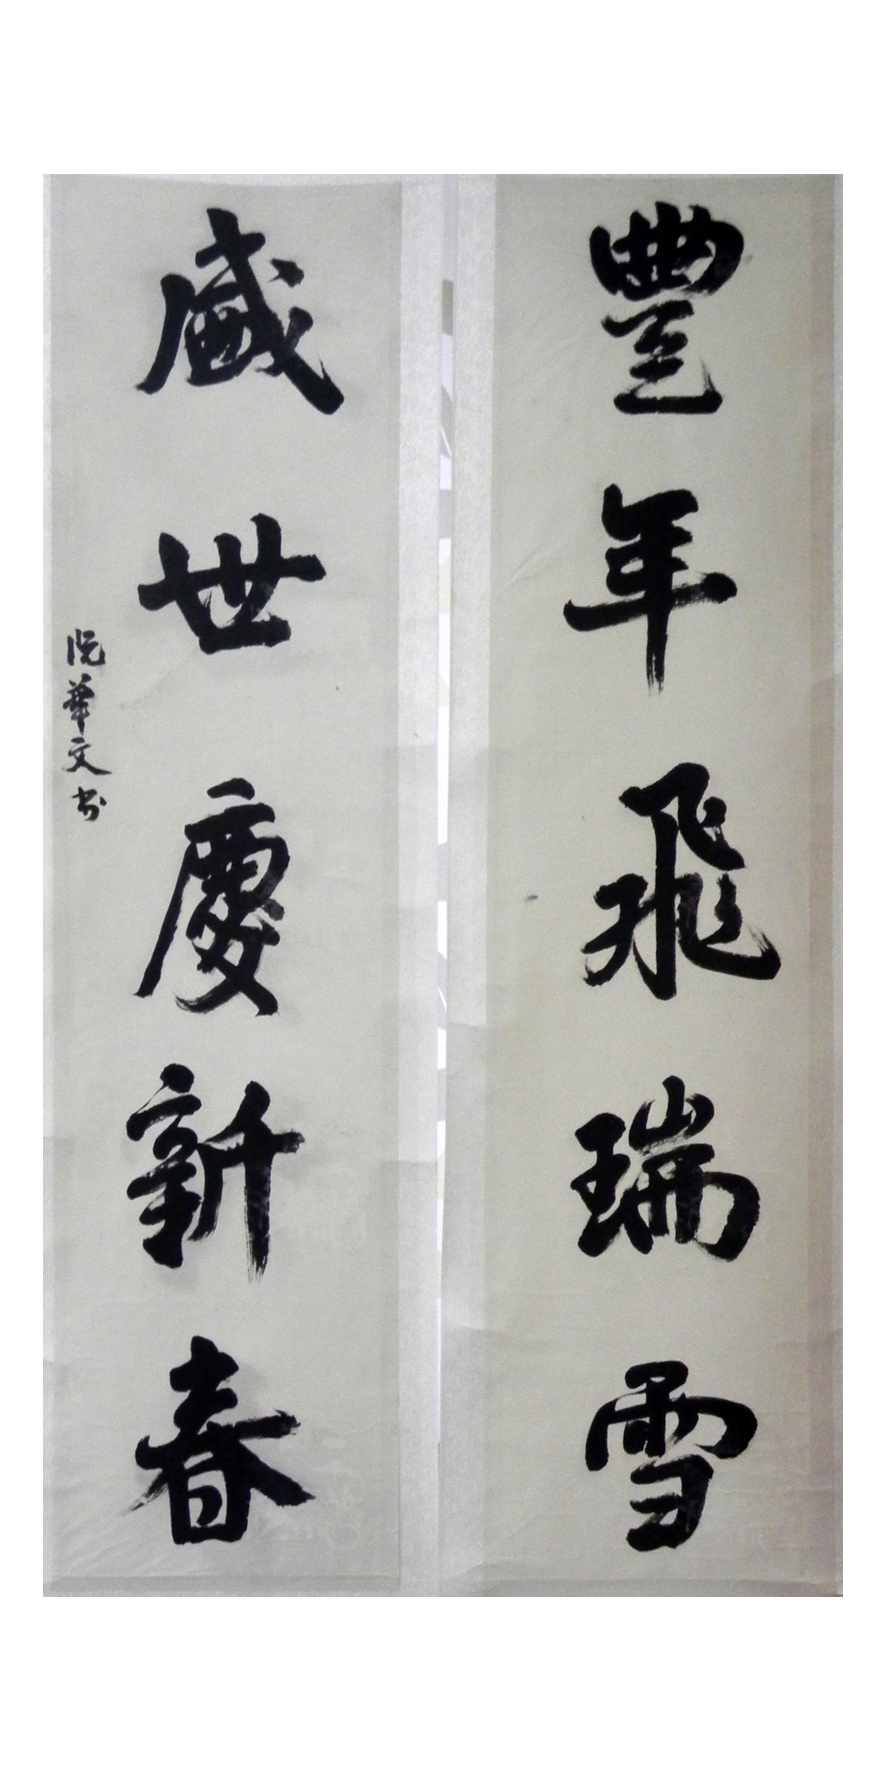 豐年飛瑞雪
盛世慶新春
阮華文书